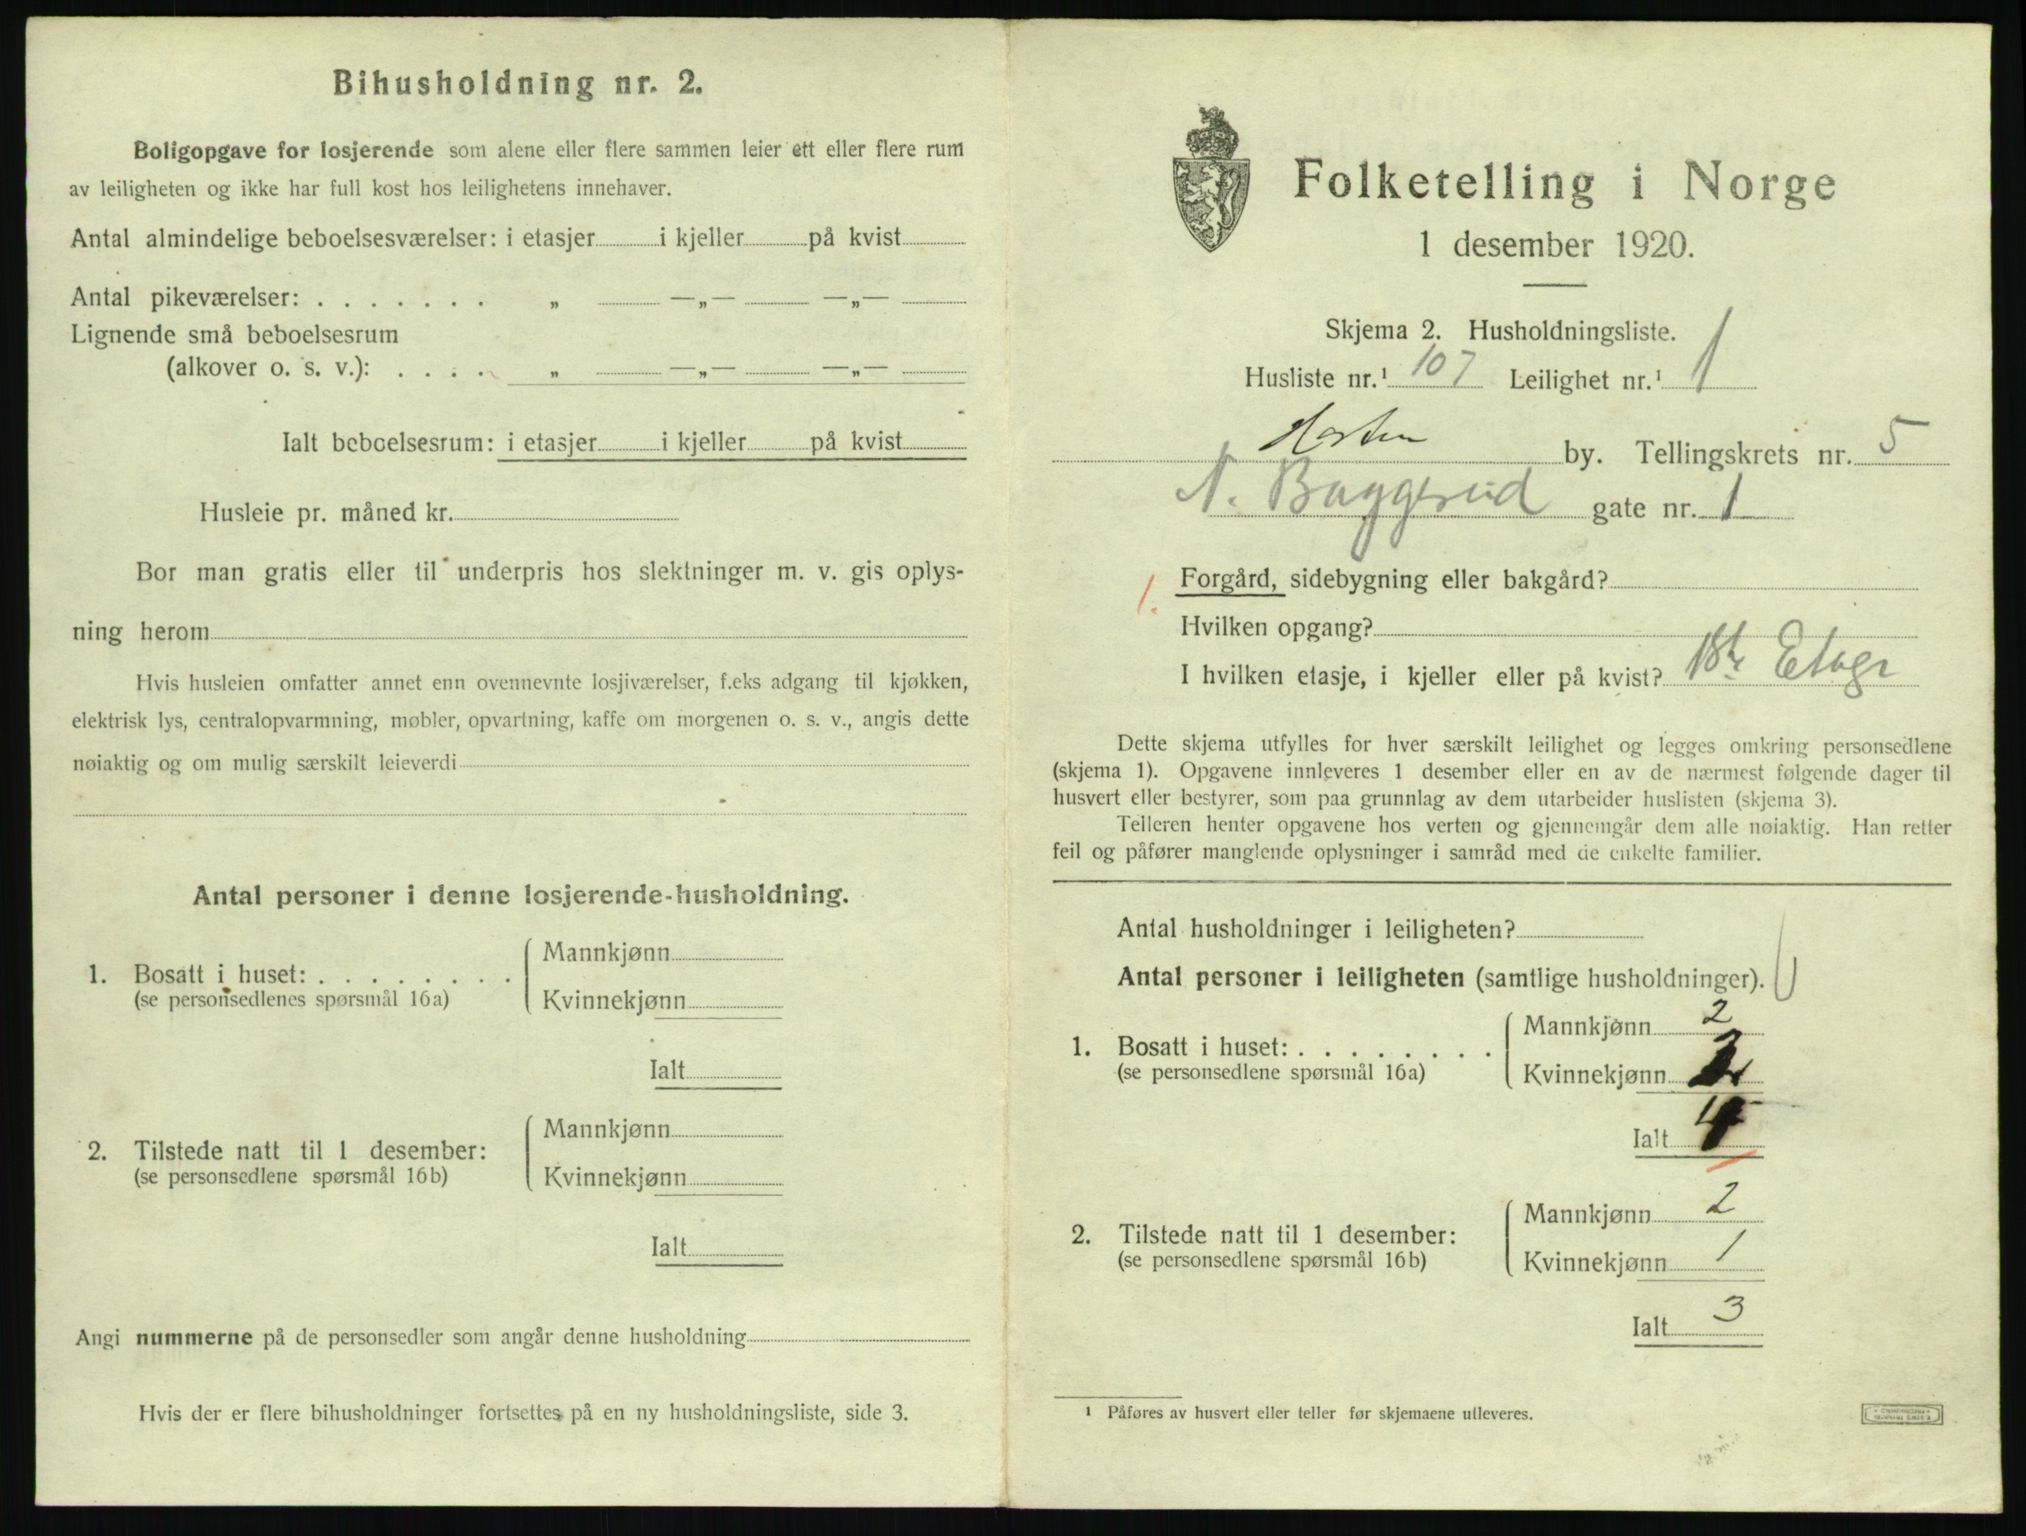 Bihusholdning nr. 2.
Boligopgave for losjerende som alene eller flere sammen leier ett eller flere rum
av leiligheten og ikke har full kost hos leilighetens innehaver.
Antal almindelige beboelsesværelser: i etasjer i kjeller på kvist
Antal pikeværelser: . . . . . . . „ —„— —„—
Lignende små beboelsesrum
(alkover o. s. v.): . . . . „ —„— —„—
Ialt beboelsesrum: i etasjer i kjeller på kvist
Husleie pr. måned kr.
Bor man gratis eller til underpris hos slektninger m. v. gis oplys-
ning herom
Hvis husleien omfatter annet enn ovennevnte losjiværelser, f.eks adgang til kjøkken,
elektrisk lys, centralopvarmning, møbler, opvartning, kaffe om morgenen o. s. v., angis dette
nøiaktig og om mulig særskilt leieverdi
Antal personer i denne losjerende-husholdning.
1. Bosatt i huset: . . . . . . . .
(se personsedlenes spørsmål 16a)
Mannkjønn
Kvinnekjønn
Ialt
2. Tilstede natt til 1 desember:
(se personsedlene spørsmål 16b)
Mannkjønn
Kvinnekjønn
Ialt
Angi nummerne på de personsedler som angår denne husholdning
Hvis der er flere bihusholdninger fortsettes på en ny husholdningsliste, side 3.
Folketelling i Norge
1 desember 1920.
Skjema 2. Husholdningsliste.
Husliste nr.¹ 107 Leilighet nr.¹ 1
Horten by. Tellingskrets nr. 5
N. Baggerud gate nr. 1
1. Forgård, sidebygning eller bakgård?
Hvilken opgang?
I hvilken etasje, i kjeller eller på kvist? 1ste Etage
Dette skjema utfylles for hver særskilt leilighet og legges omkring personsedlene
(skjema 1). Opgavene innleveres 1 desember eller en av de nærmest følgende dager til
husvert eller bestyrer, som paa grunnlag av dem utarbeider huslisten (skjema 3).
Telleren henter opgavene hos verten og gjennemgår dem alle nøiaktig. Han retter
feil og påfører manglende oplysninger i samråd med de enkelte familier.
Antal husholdninger i leiligheten?
Antal personer i leiligheten (samtlige husholdninger).
1. Bosatt i huset: . . . . . . . .
(se personsedlene spørsmål 16a)
Mannkjønn 2
Kvinnekjønn 2
Ialt 4
2. Tilstede natt til 1 desember:
(se personsedlene spørsmål 16b)
Mannkjønn 2
Kvinnekjønn 1
Ialt 3
¹ Påføres av husvert eller teller før skjemaene utleveres.